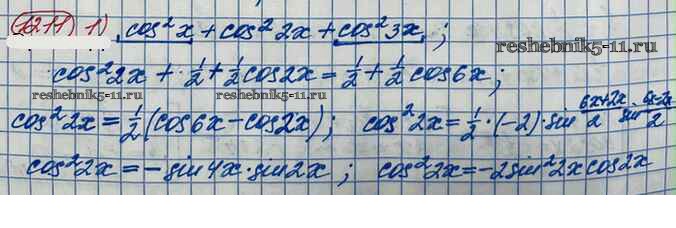 1211) 1) cos²x + cos²2x + cos²3x ;
reshebnik5-11.ru
cos²2x + 1/2 + 1/2 cos2x = 1/2 + 1/2 cos6x ;
reshebnik5-11.ru reshebnik5-11.ru
cos²2x = 1/2 (cos6x - cos2x) ; cos²2x = 1/2 · (-2) · sin (6x+2x)/2 · sin (6x-2x)/2
cos²2x = - sin4x · sin2x ; cos²2x = -2sin²2x cos2x